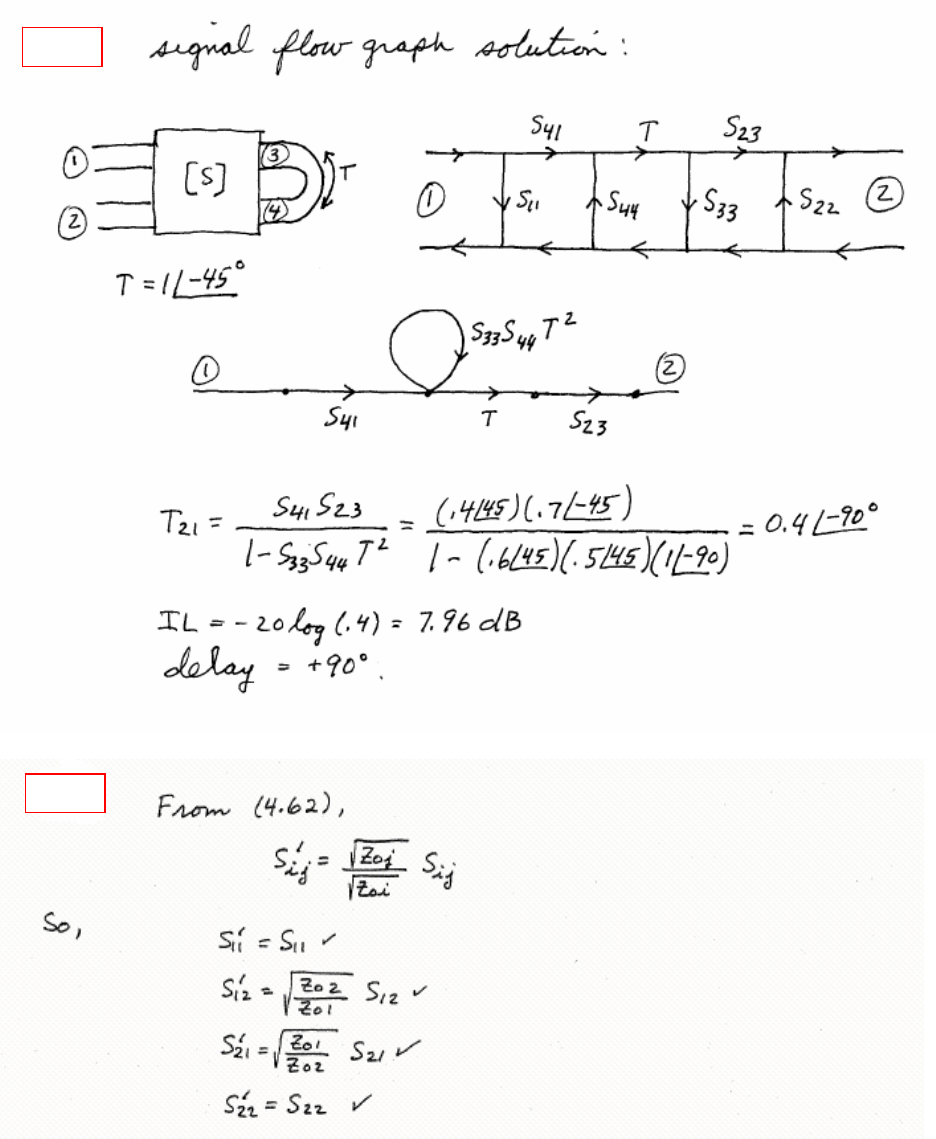 signal flow graph solution:
S41 T S23
① ② [S] ③ ④ T
① S11 S44 S33 S22 ②
T = 1∠-45°
S33S44T²
① ②
S41 T S23
T21 = S41 S23 / (1 - S33S44T²) = (.4∠45)(.7∠-45) / (1 - (.6∠45)(.5∠45)(1∠-90)) = 0.4∠-90°
IL = -20 log (.4) = 7.96 dB
delay = +90°.
From (4.62),
S'ij = √Z0j / √Z0i Sij
So,
S'11 = S11 ✓
S'12 = √(Z02/Z01) S12 ✓
S'21 = √(Z01/Z02) S21 ✓
S'22 = S22 ✓